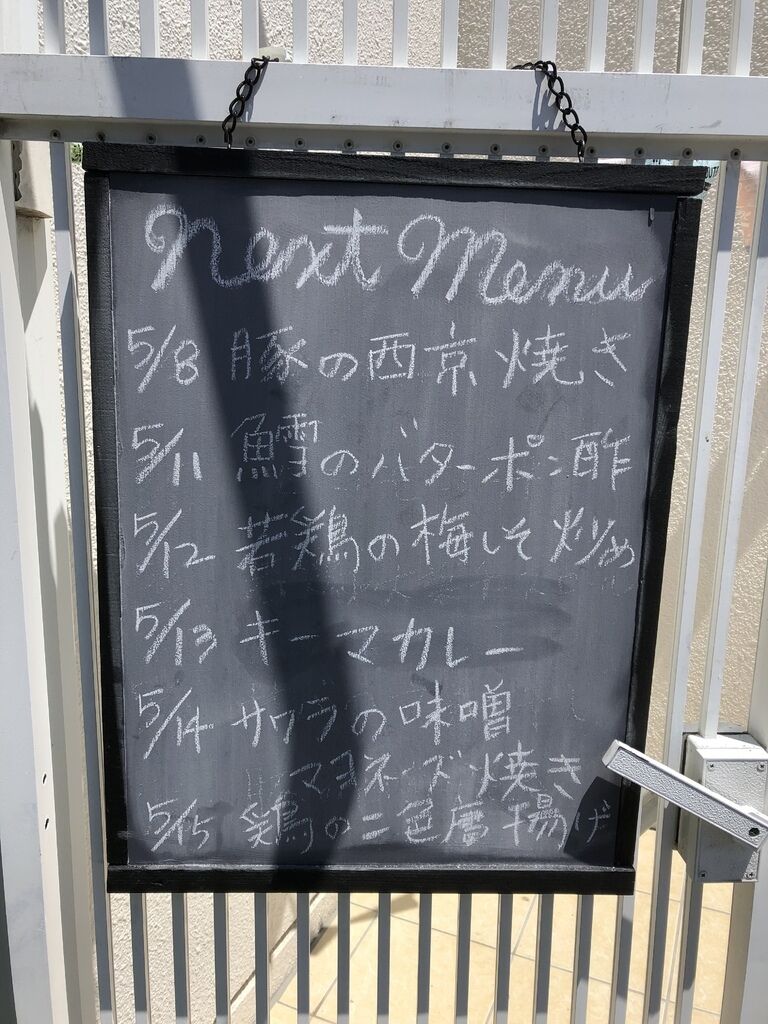 Next Menu
5/8 豚の西京焼き
5/11 鱈のバターポン酢
5/12 若鶏の梅しそ炒め
5/13 キーマカレー
5/14 サワラの味噌
マヨネーズ焼き
5/15 鶏の二色唐揚げ